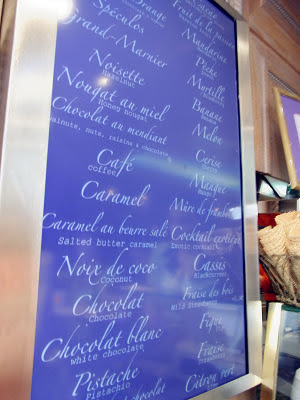 Spéculos
Orange
Grand-Marnier
Noisette
Hazelnut
Nougat au miel
Honey nougat
Chocolat au mendiant
walnuts, nuts, raisins & chocolate
Café
coffee
Caramel
Caramel au beurre salé
Salted butter caramel
Noix de coco
Coconut
Chocolat
Chocolate
Chocolat blanc
White chocolate
Pistache
Pistachio
Fruit de la passion
Mandarine
Pêche
Myrtille
Banane
Melon
Cerise
Mangue
Mûre de
Cocktail
Exotic cocktail
Cassis
Blackcurrant
Fraise des bois
Wild
Figue
Fraise
Citron vert